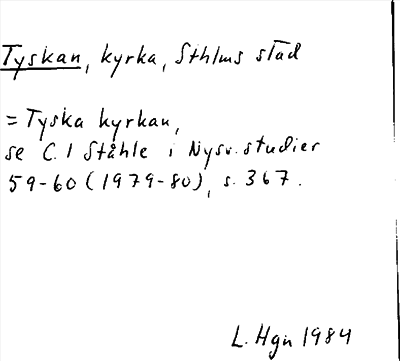 Tyskan, kyrka, Sthlms stad
= Tyska kyrkan,
se C. I Ståhle i Nysv. studier
59-60 (1979-80), s. 367.
L. Hgn 1984